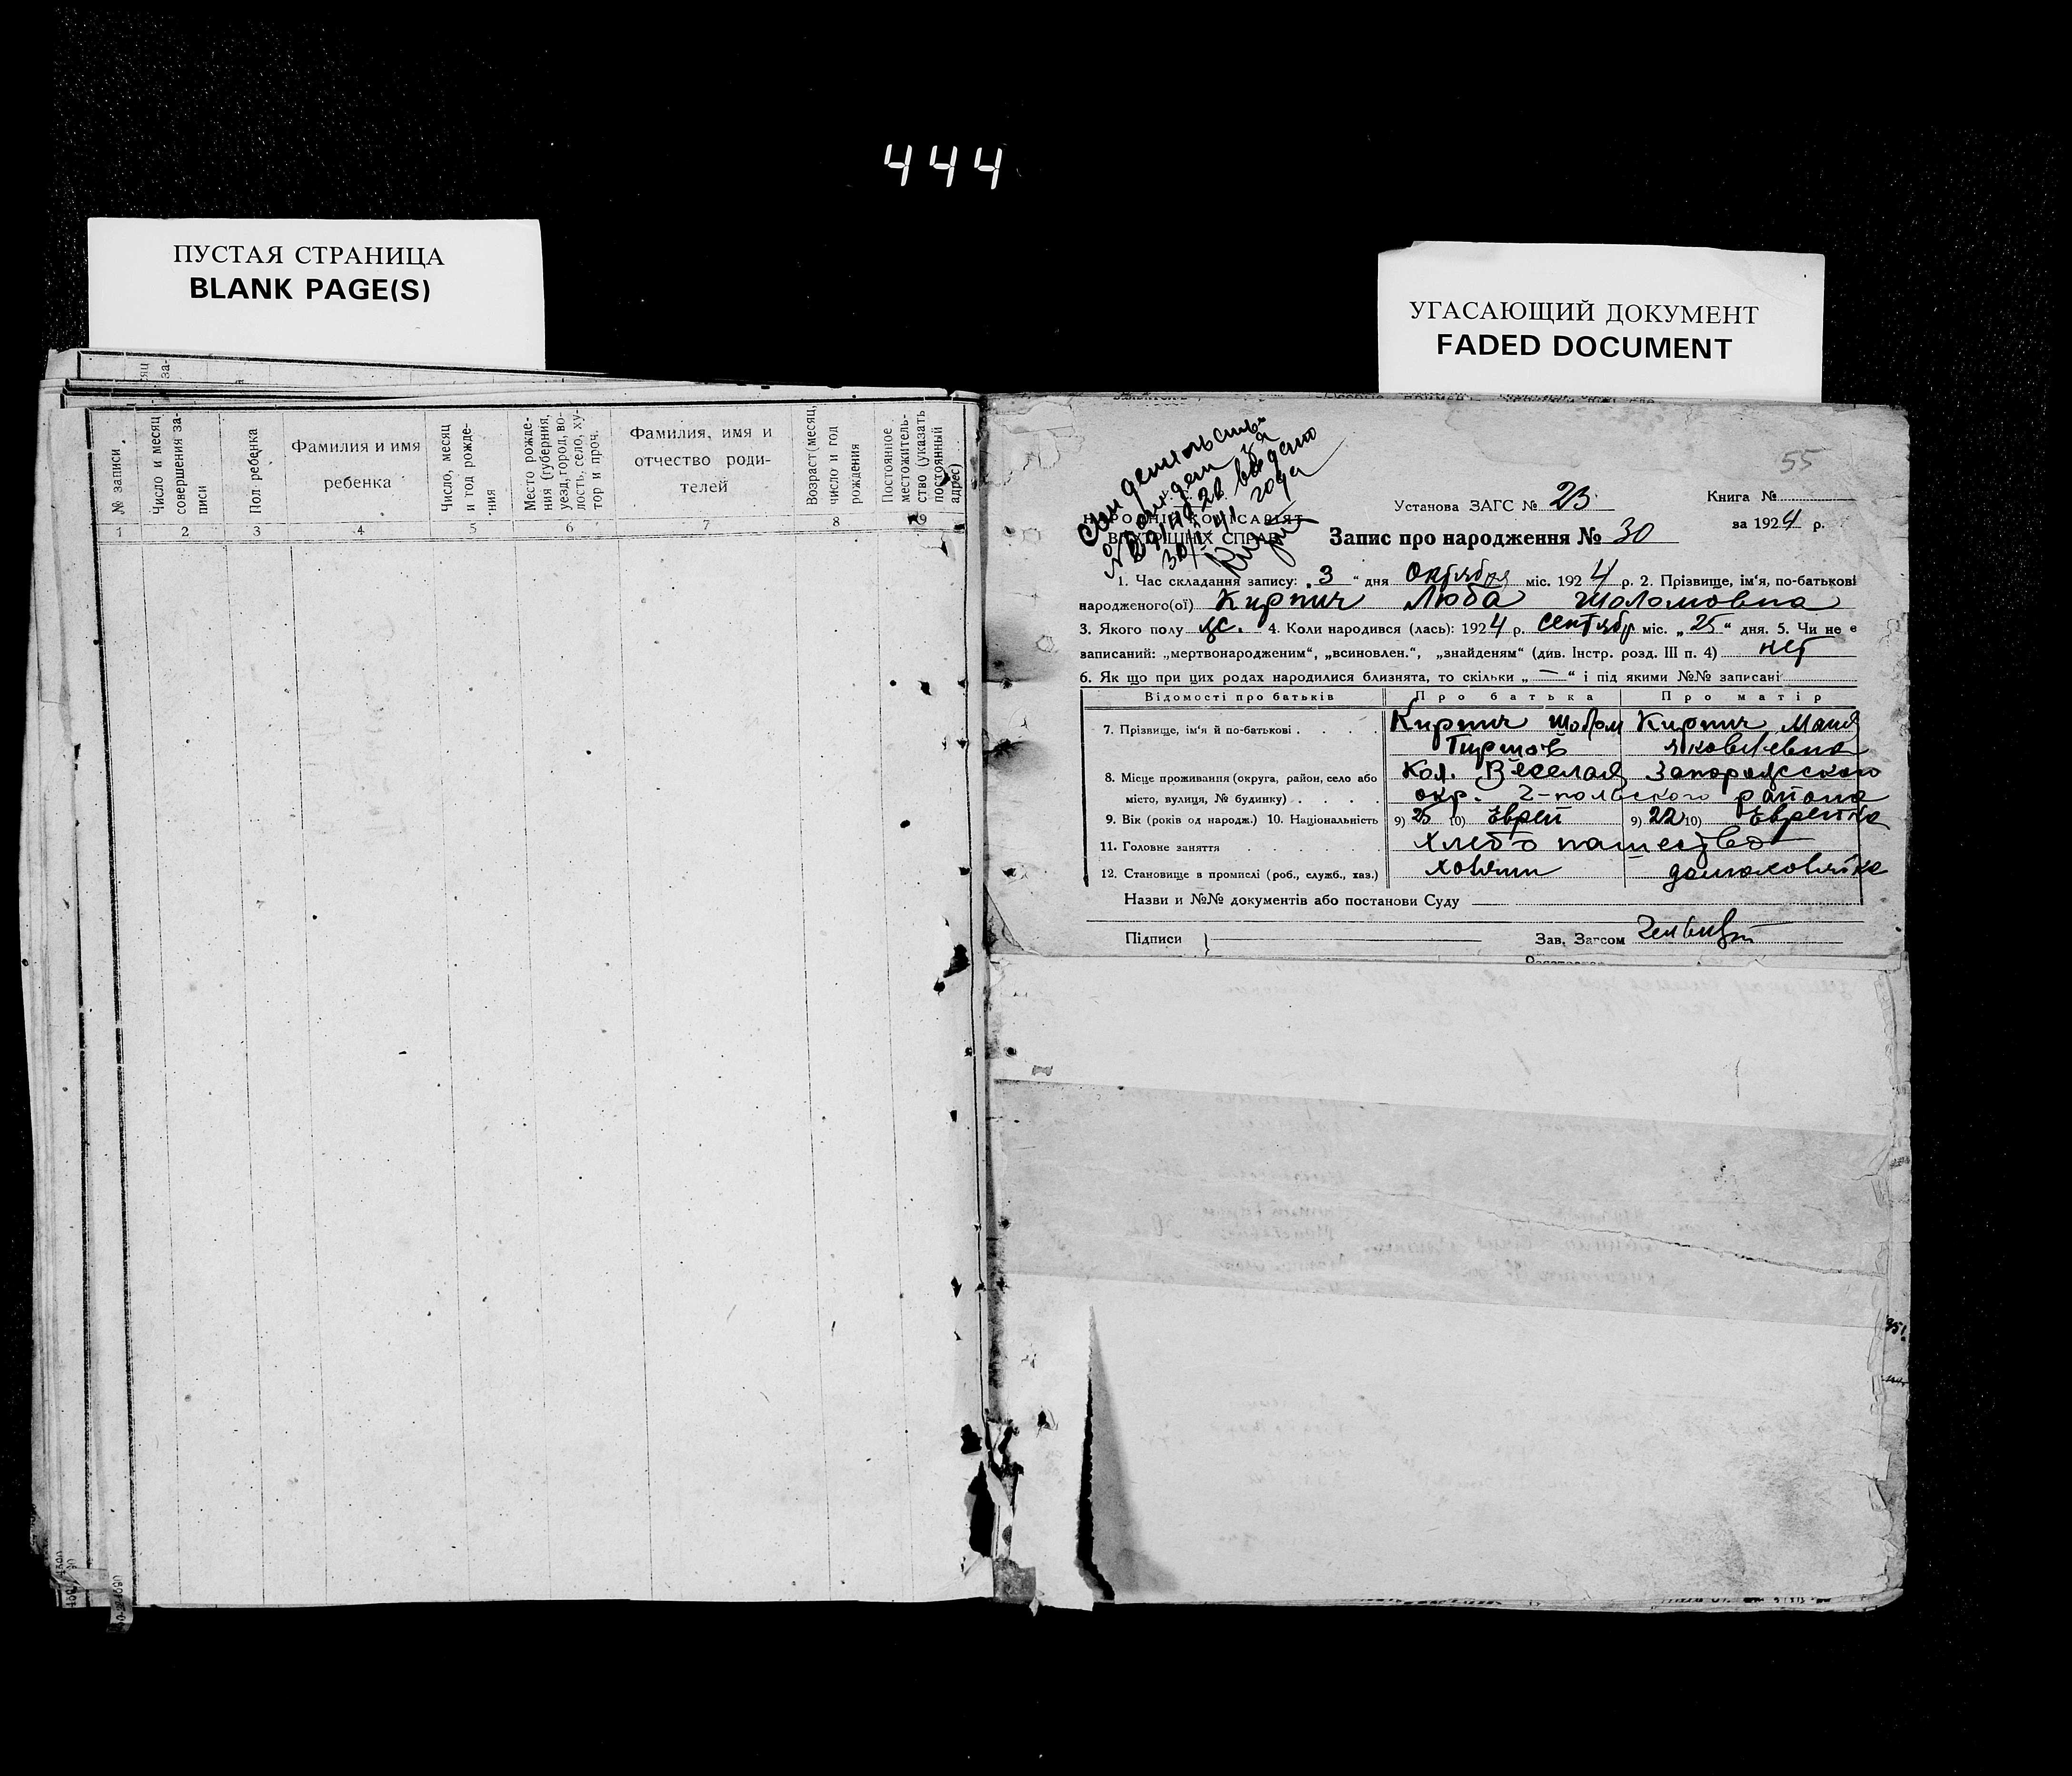 444
ПУСТАЯ СТРАНИЦА
BLANK PAGE(S)
УГАСАЮЩИЙ ДОКУМЕНТ
FADED DOCUMENT
№ записи
Число и месяц совершения за-
писи
Пол ребенка
Фамилия и имя
ребенка
Число, месяц
и год рожде-
ния
Место рожде-
ния (губерния,
уезд, город, во-
лость, село, ху-
тор и проч.
Фамилия, имя и
отчество роди-
телей
Возраст (месяц,
число и год
рождения
Постоянное
местожитель-
ство (указать
постоянный
адрес)
1 2 3 4 5 6 7 8 9
55
Установа ЗАГС № 23
Книга №
за 1924 р.
ВНУТРІШНІХ СПРАВ
Запис про народження № 30
1. Час складання запису: „3“ дня Октября міс. 1924 р. 2. Прізвище, ім'я, по-батькові
народженого(ої) Кирпич Люба Шоломовна
3. Якого полу ж. 4. Коли народився (лась): 1924 р. Сентябр міс. „25“ дня. 5. Чи не є
записаний: „мертвонародженим“, „всиновлен.“, „знайденям“ (див. Інстр. розд. III п. 4) нет
6. Як що при цих родах народилися близнята, то скільки „—“ і під якими №№ записані
Відомості про батьків Про батька Про матір
7. Прізвище, ім'я й по-батькові Кирпич Шолом Кирпич Маня
Гиршов Яковлевна
8. Місце проживання (округа, район, село або Кол. Веселая Запорожского
місто, вулиця, № будинку) окр. Г-польского района
9. Вік (років од народж.) 10. Національність 9) 25 10) Еврей 9) 22 10) Еврейка
11. Головне заняття Хлебопашество
12. Становище в промислі (роб., служб., хаз.) хозяин домохозяйка
Назви и №№ документів або постанови Суду
Підписи
Зав. Загсом